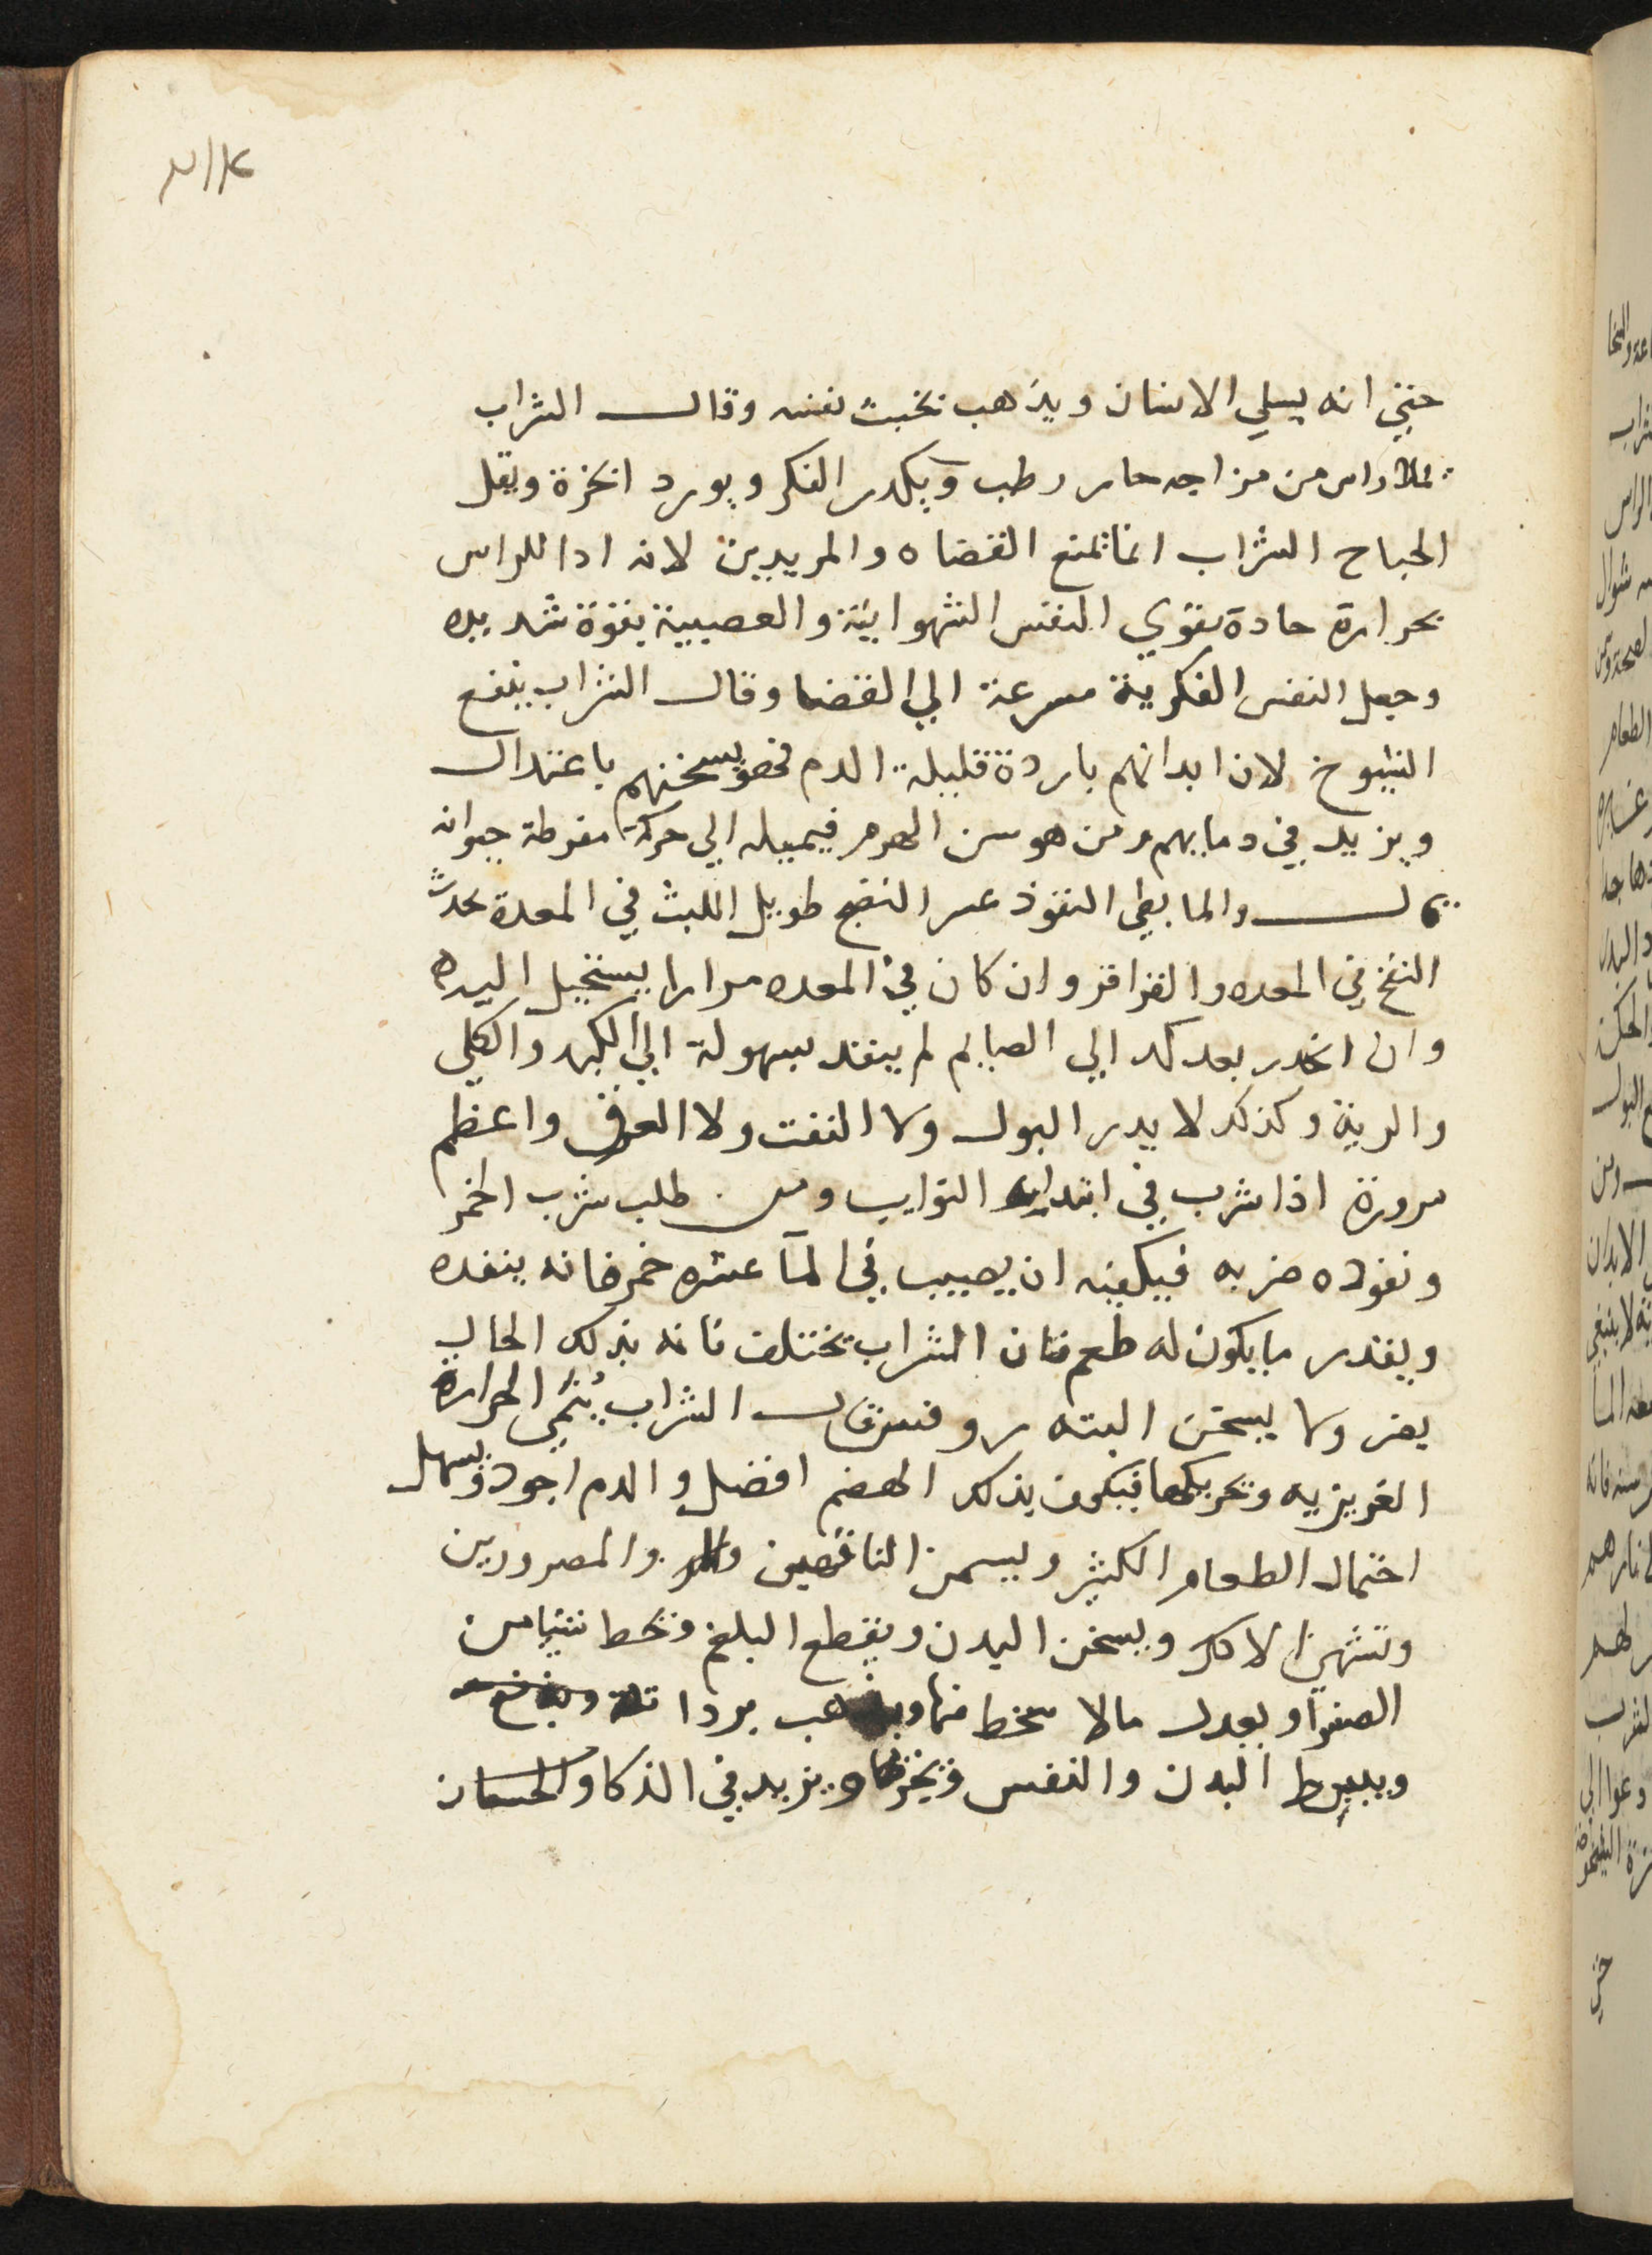 حتي انه يسلي الانسان ويذهب بخبث نفسه وقال الشراب
يملا راس من مزاجه حار رطب ويكدر الفكر ويورد ابخرة ويقل
الجباح الشراب انما تمنع القضاه والمريدين لانه اذا للراس
بحرارة حادة يقوي النفس الشهوانية والعصبية بقوة شديده
وجعل النفس الفكرية مسرعة الي القضا وقال الشراب ينفع
الشيوخ لان ابدانهم باردة قليلة الدم فهو يسخنهم باعتدال
ويزيد في دمايهم ومن هو سن الهرم فيميله الي حركة مفرطة جيرانه
والما بطي النفوذ عسر النضج طويل اللبث في المعدة يحدث
النفخ في المعده والقراقر وان كان في المعده مرارا يستحيل اليه
وان انحدر بعد كد الي الصايم لم ينفد بسهولة الي الكبد والكلي
والرية وكذلك لا يدر البول ولا النفث ولا العرق واعظم
سرورة اذا شرب في ابتدايه النوايب ومن طلب شرب الخمر
ونفوده ضر به فيكفيه ان يصيب في الما عشره خمر فانه ينفده
ويقدر ما يكون له طعم فان الشراب تختلف فانه بذلك الحال
يضر ولا يسخن البته روفس قال الشراب يُنَمِّي الحرارة
الغريزيه وتحريكها فيكون بذلك الهضم افضل والدم اجود ويسهل
احتمال الطعام الكثير ويسمن الناقهين والمصرورين
وتشهي الاكل ويسخن البدن ويقطع البلغم ويحط شيا من
الصفرا وبعدل مالا يتحط منها ويذهب برداته
ويبسط البدن والنفس ويفرحها ويزيد في الذكا